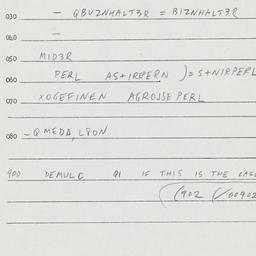 030 — QBUZNHALT3R = BIZNHALT3R
060 —
050 MID3R
060 PERL AS+IRPERN ) = S+NIRPERL
070 XOGEFINEN AGROSSE PERL
080 — Q MEDA, LYON
900 DEMULC QI IF THIS IS THE CASE
(902 (/00902